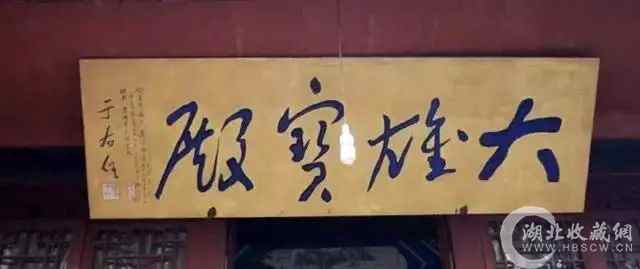 大雄寶殿
于右任
湖北收藏網
WWW.HBSCW.CN